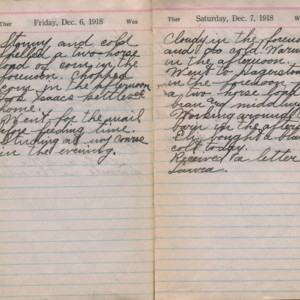 Ther Friday, Dec. 6, 1918 Wea
Stormy and cold
a two-horse
load of corn in the
forenoon. Chopped
corn in the afternoon
took Isaacs
home.
Went for the mail
before feeding time.
Studied at my course
in the evening.
Ther Saturday, Dec. 7, 1918
Cloudy in the forenoon
and cold. Warm
in the afternoon.
Went to
in the forenoon
a two horse load
bran and middlings
Working around the
barn in the afternoon
Eli bought a
colt today.
Received a letter
Laura.